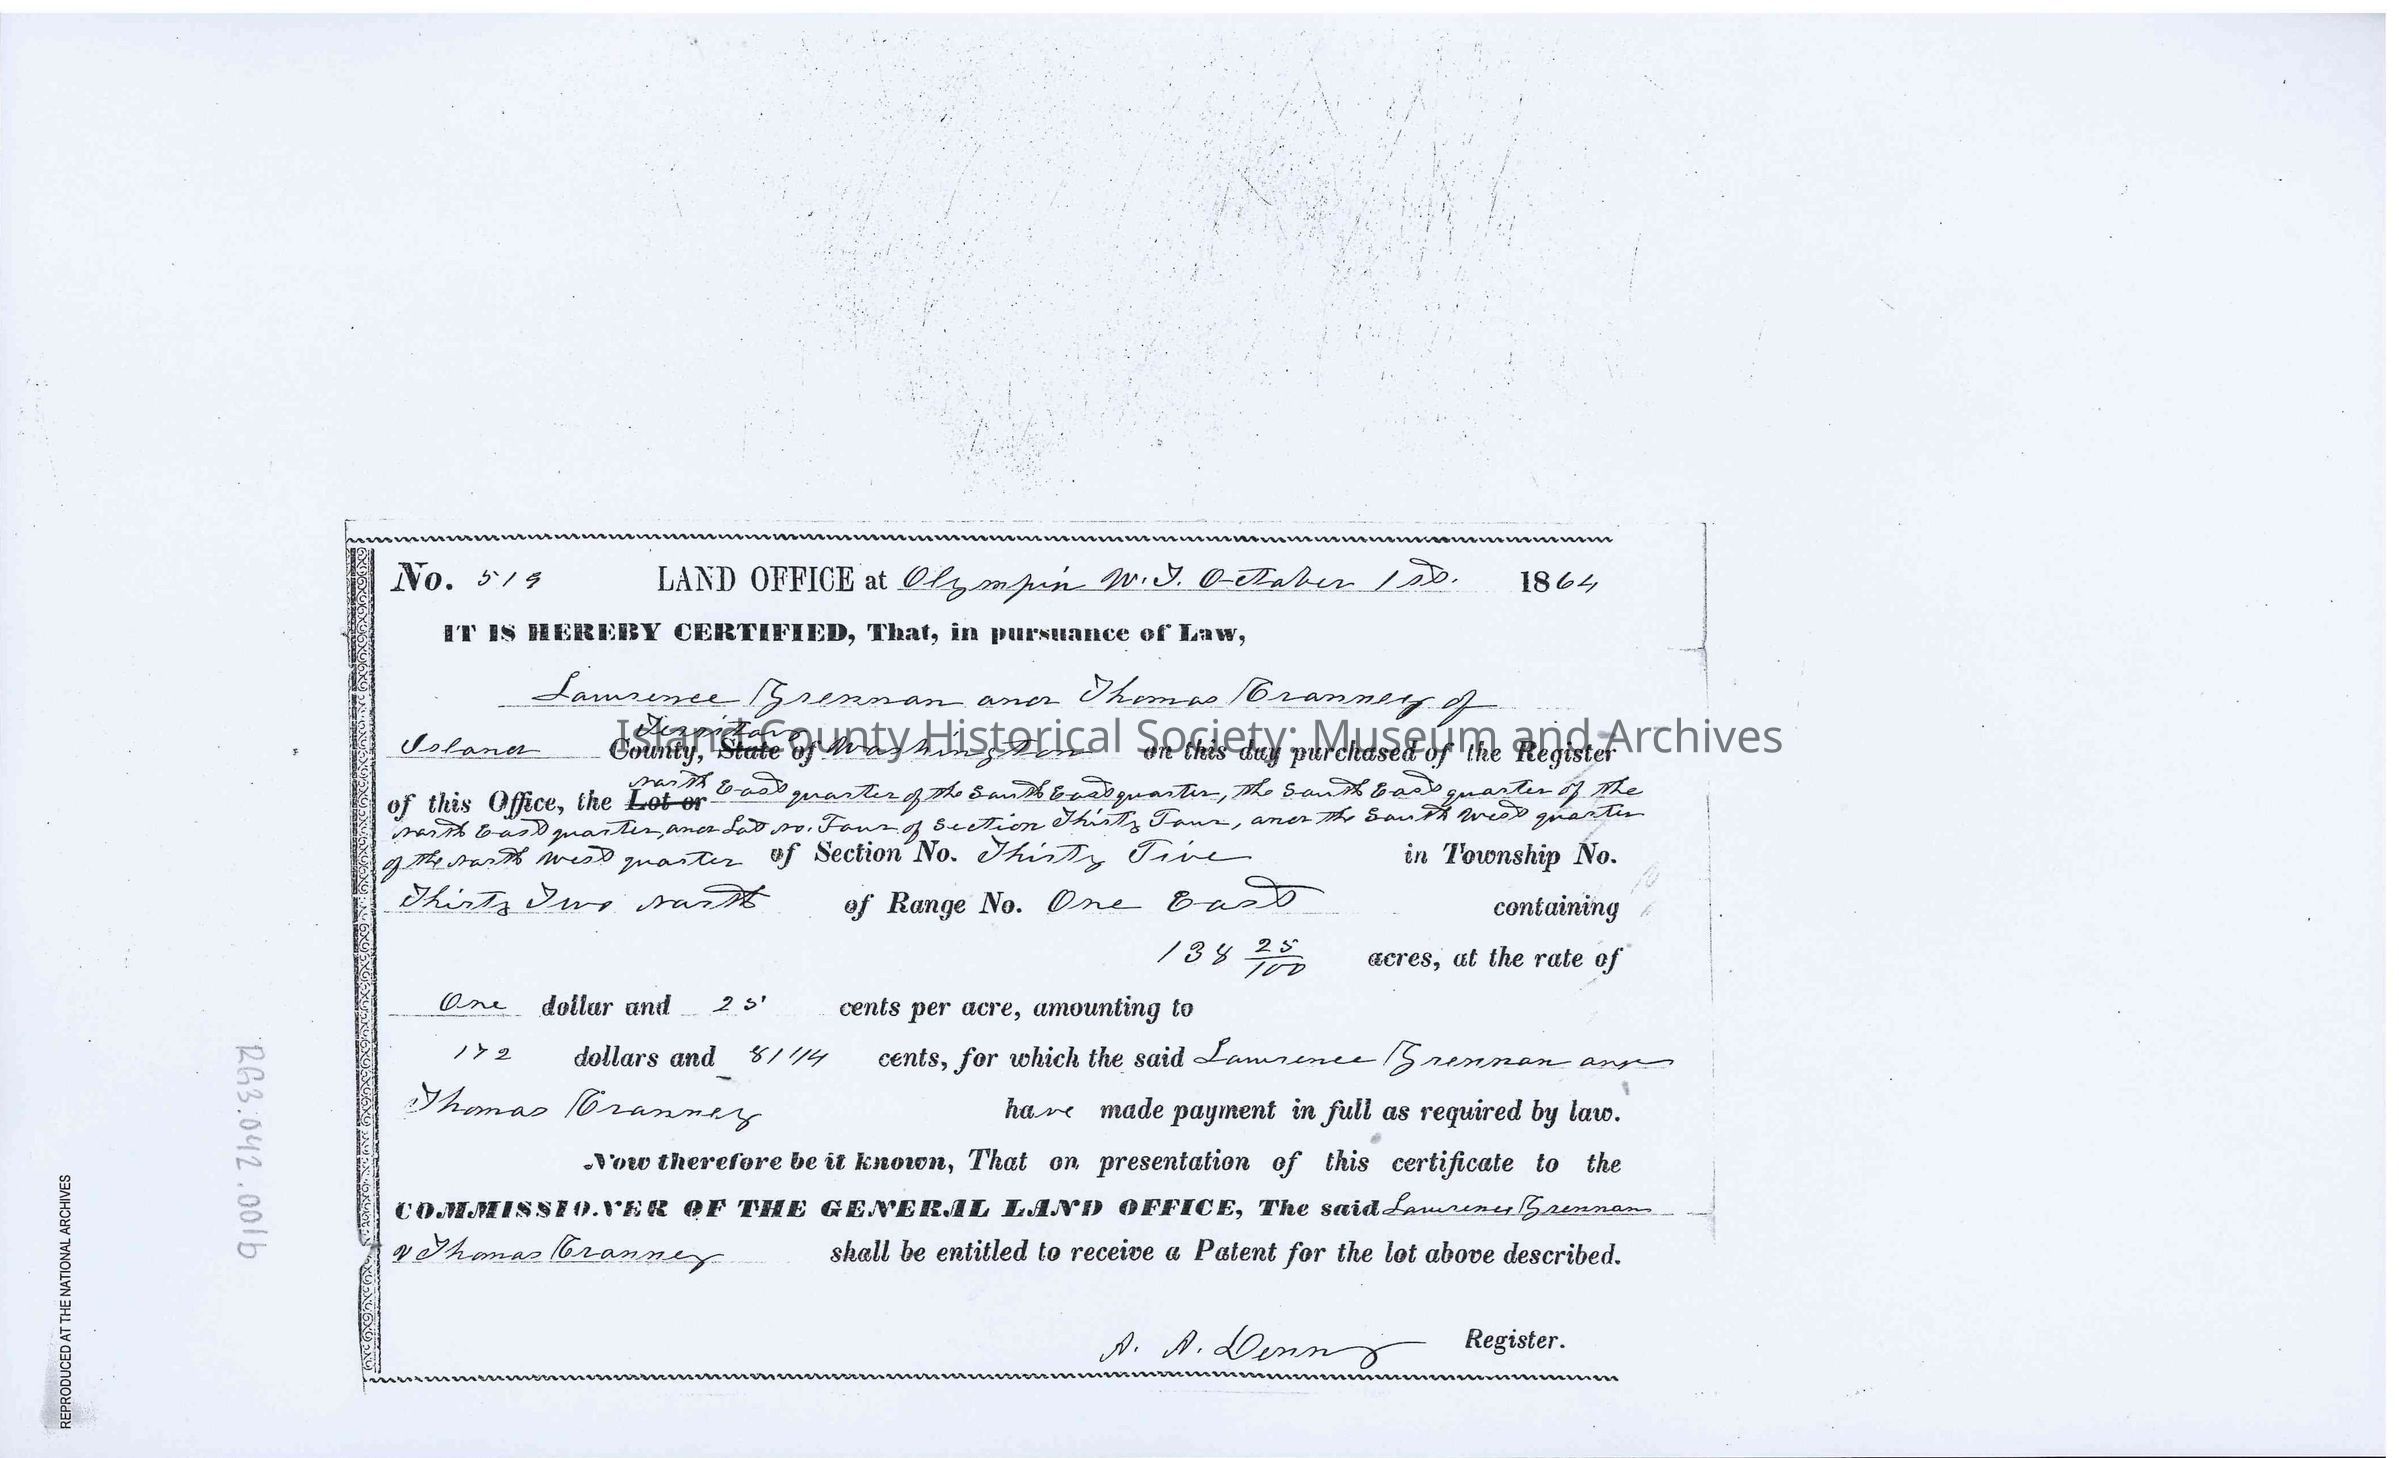 No. 519 LAND OFFICE at Olympia W.T. October 1st. 1864
IT IS HEREBY CERTIFIED, That, in pursuance of Law,
Lawrence Grennan and Thomas Cranney of
Territory
Island County, State of Washington on this day purchased of the Register
Island County Historical Society: Museum and Archives
of this Office, the Lot or North East quarter of the South East quarter, the South East quarter of the
North East quarter, and Lot No. Four of Section Thirty Four, and the South West quarter
of the North West quarter of Section No. Thirty Five in Township No.
Thirty Two North of Range No. One East containing
138 25/100 acres, at the rate of
One dollar and 25 cents per acre, amounting to
172 dollars and 81 1/4 cents, for which the said Lawrence Grennan and
Thomas Cranney have made payment in full as required by law.
Now therefore be it known, That on presentation of this certificate to the
COMMISSIONER OF THE GENERAL LAND OFFICE, The said Lawrence Grennan
& Thomas Cranney shall be entitled to receive a Patent for the lot above described.
A. A. Denny Register.
RG3.042.001b
REPRODUCED AT THE NATIONAL ARCHIVES